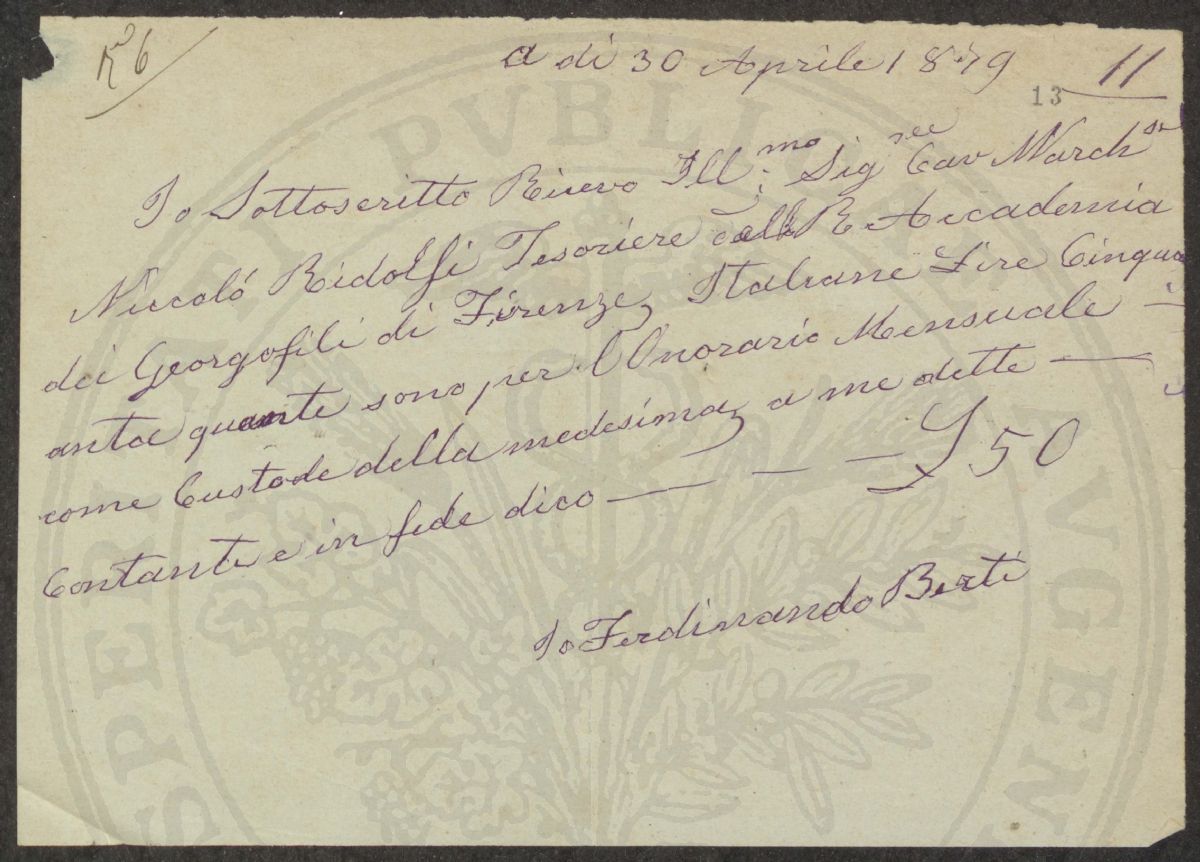 a di 30 Aprile 1879
11
13
Io Sottoscritto Ricevo Ill:mo Sig Cav March
Niccoló Ridolfi Tesoriere R Accademia
dei Georgofili di Firenze, Italiane Lire Cinqu
anta quante sono per l Onorario Mensuale
come Custode della medesima, a me dette
Contanti e in fede dico — — — — £ 50
Io Ferdinando Berti
PVBLICAE
AVGEN
SPERITATI